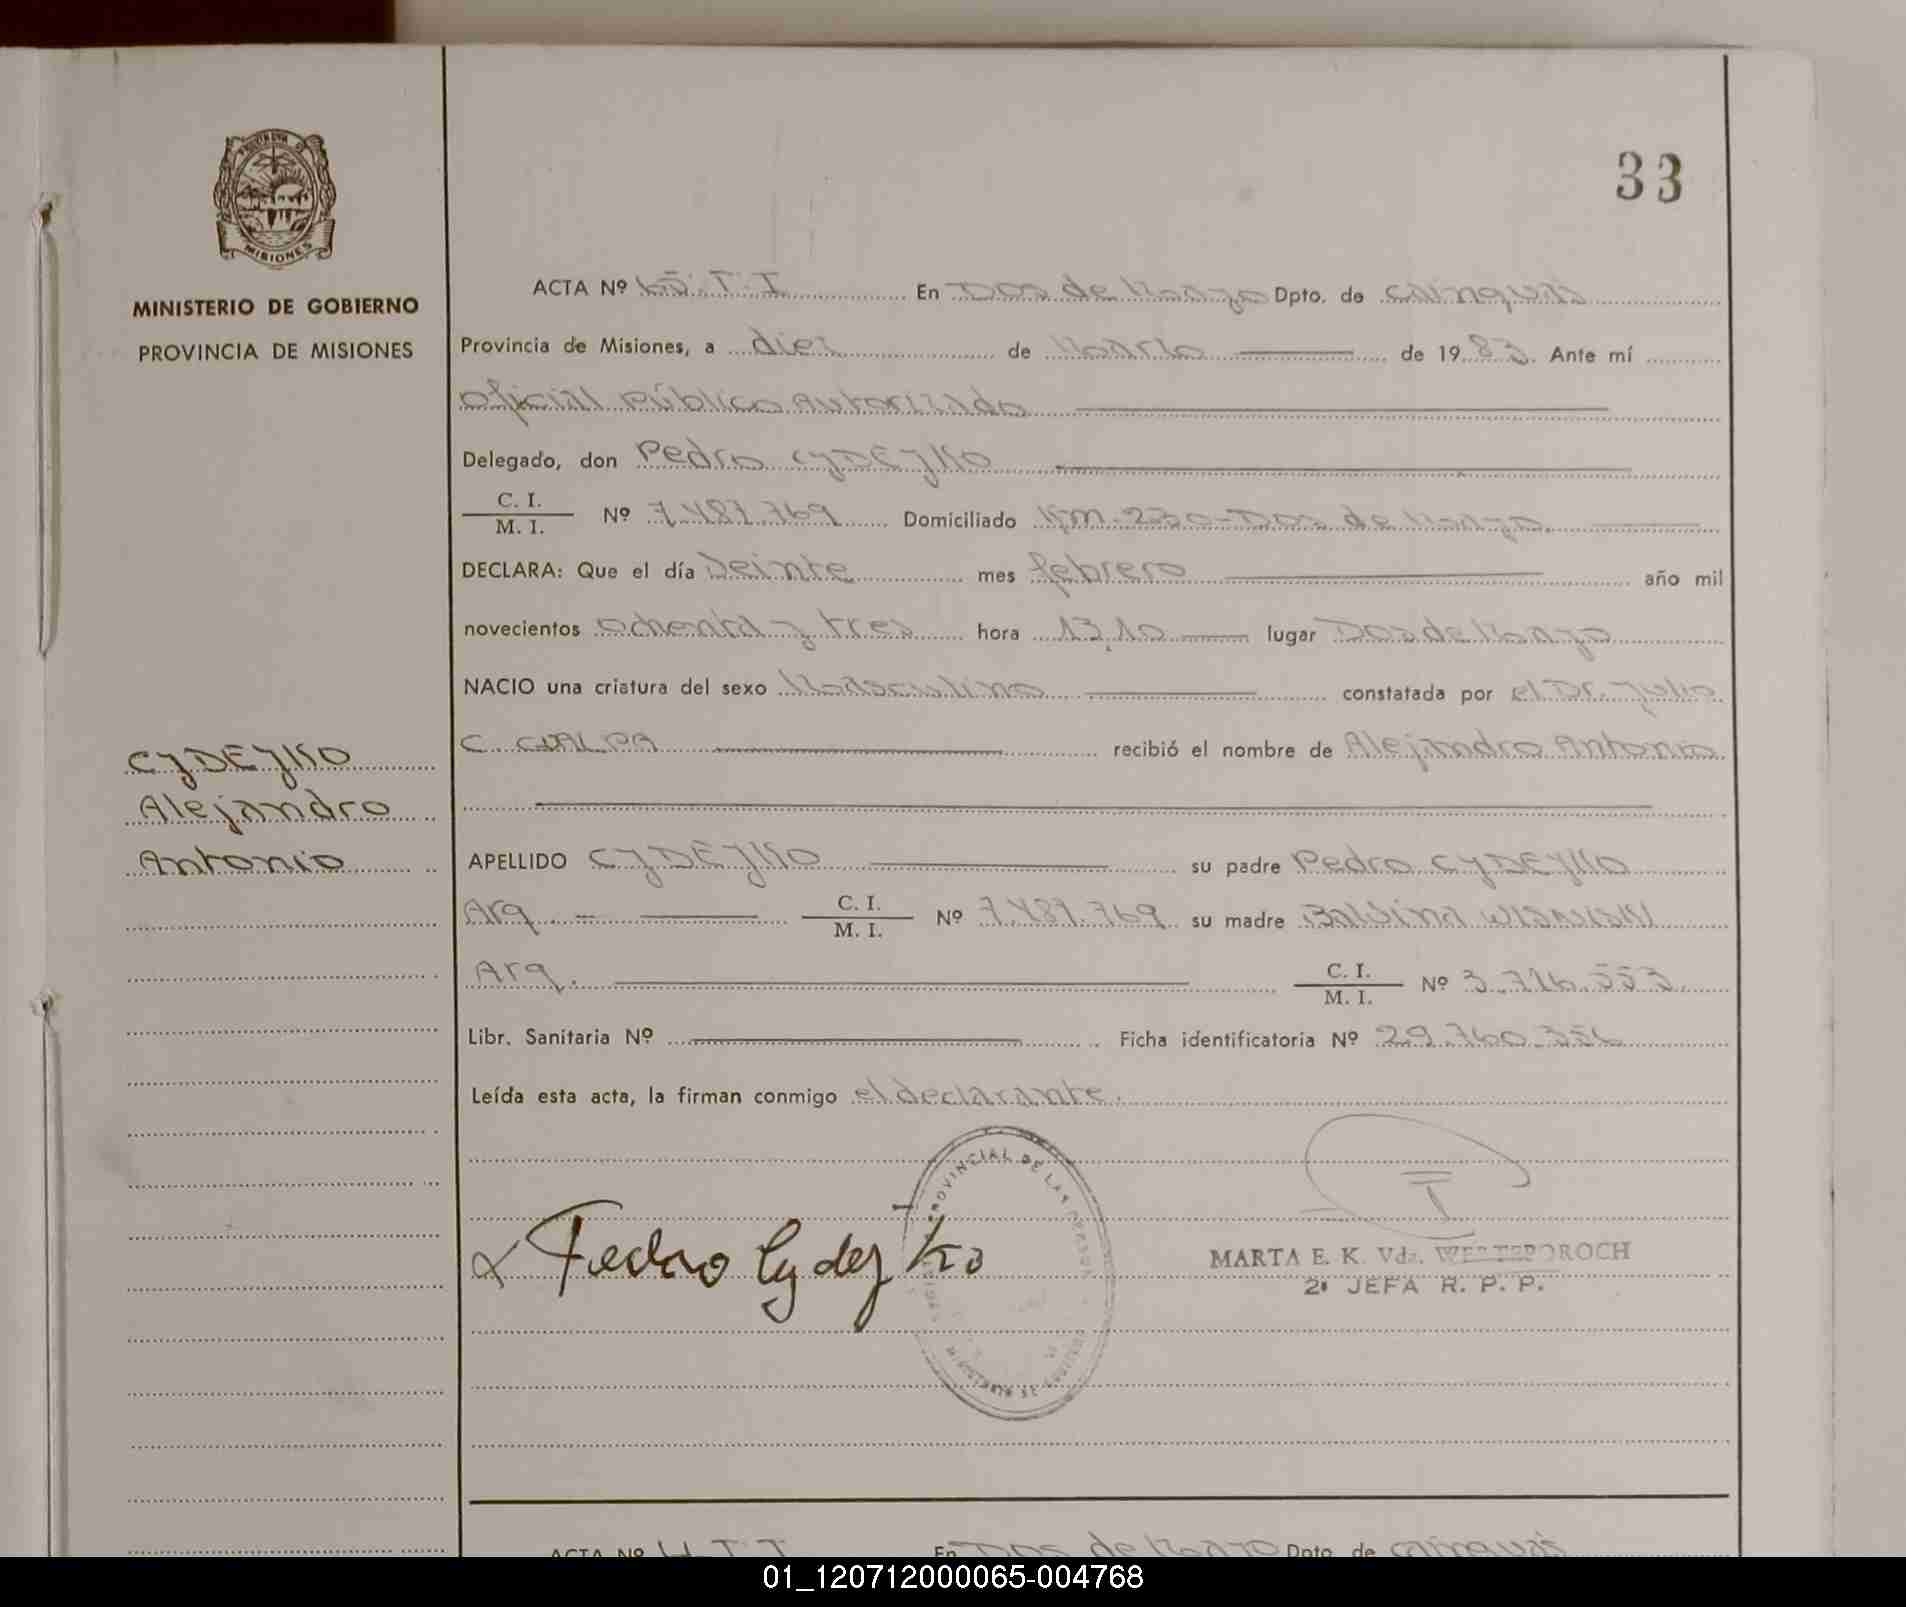 33
MISIONES
MINISTERIO DE GOBIERNO
PROVINCIA DE MISIONES
CYDEYKO
Alejandro
Antonio
ACTA Nº 65. T. I En Dos de Mayo Dpto. de Cainguás
Provincia de Misiones, a diez de Marzo de 1983. Ante mí
oficial público Autorizado
Delegado, don Pedro CYDEYKO
C. I.
M. I. Nº 7.487.769 Domiciliado KM-230-Dos de Mayo.
DECLARA: Que el día Veinte mes febrero año mil
novecientos ochenta y tres hora 13,10 lugar Dos de Mayo
NACIO una criatura del sexo Masculino constatada por el Dr. Julio
C. recibió el nombre de Alejandro Antonio
APELLIDO CYDEYKO su padre Pedro CYDEYKO
Arq C. I.
M. I. Nº 7.487.769 su madre
Arq. C. I.
M. I. Nº 3.716.553
Libr. Sanitaria Nº Ficha identificatoria Nº 29.760.356
Leída esta acta, la firman conmigo el declarante.
PROVINCIAL DE LAS
Pedro Cydeyko
MARTA E. K. Vda.
2ª JEFA R. P. P.
ACTA Nº T. I En Dos de Mayo Dpto. de Cainguás
01_120712000065-004768